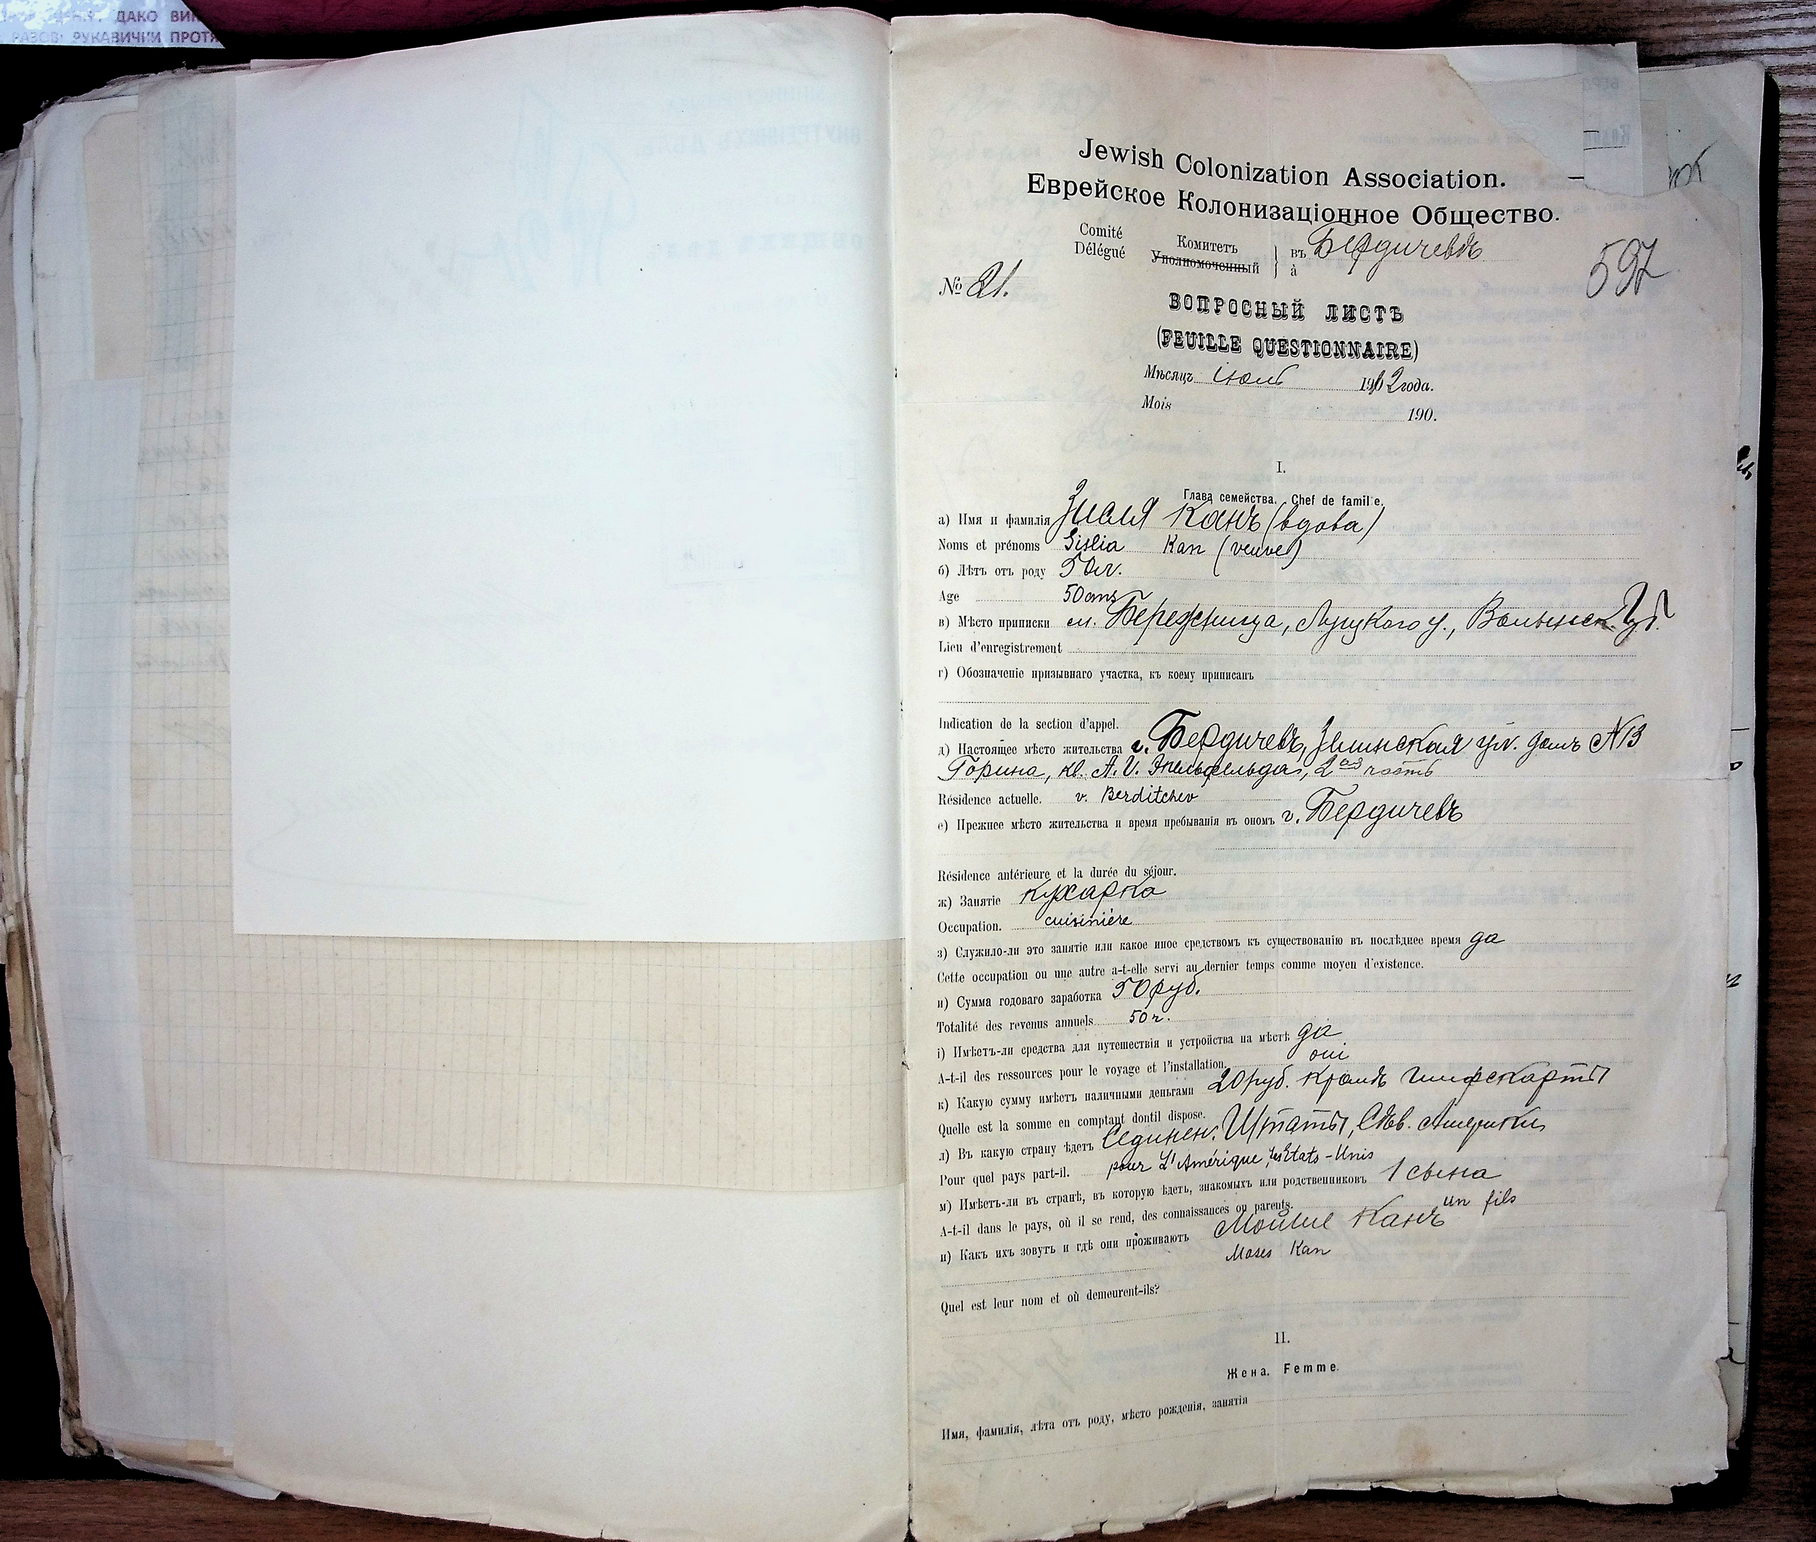 ДАКО ВИК
РАЗОВІ РУКАВИЧКИ ПРОТЯ
Jewish Colonization Association.
Еврейское Колонизаціонное Общество.
Comité Комитетъ въ Бердичевѣ
Délégué Уполномоченный à
597
№ 21.
ВОПРОСНЫЙ ЛИСТЪ
(FEUILLE QUESTIONNAIRE)
Мѣсяцъ іюль 1912 года.
Mois 190 .
I.
Глава семейства. Chef de famille.
а) Имя и фамилія Зисля Канъ (вдова)
Noms et prénoms Sislia Kan (veuve)
б) Лѣтъ отъ роду 50 л.
Age 50 ans
в) Мѣсто приписки м. Бережница, Луцкаго у., Волынск. Губ.
Lieu d'enregistrement
г) Обозначеніе призывнаго участка, къ коему приписанъ
Indication de la section d'appel.
д) Настоящее мѣсто жительства г. Бердичевъ, ул. домъ №
Горина, кв. А. И. 2ая часть
Résidence actuelle. v. Berditchev
е) Прежнее мѣсто жительства и время пребыванія въ ономъ г. Бердичевъ
Résidence antérieure et la durée du séjour.
ж) Занятіе кухарка
Occupation. cuisinière
з) Служило-ли это занятіе или какое иное средствомъ къ существованію въ послѣднее время да
Cette occupation ou une autre a-t-elle servi au dernier temps comme moyen d'existence.
и) Сумма годоваго заработка 50 руб.
Totalité des revenus annuels 50 r.
і) Имѣетъ-ли средства для путешествія и устройства на мѣстѣ да
A-t-il des ressources pour le voyage et l'installation. oui
к) Какую сумму имѣетъ наличными деньгами 20 руб. кромѣ шифскарты
Quelle est la somme en comptant dontil dispose.
л) Въ какую страну ѣдетъ Сединен. Штаты, Сѣв. Америки
Pour quel pays part-il. pour L'Amérique, les Etats-Unis
м) Имѣетъ-ли въ странѣ, въ которую ѣдетъ, знакомыхъ или родственниковъ 1 сына
A-t-il dans le pays, où il se rend, des connaissances ou parents. un fils
н) Какъ ихъ зовутъ и гдѣ они проживаютъ Мойше Канъ
Moses Kan
Quel est leur nom et où demeurent-ils?
II.
Жена. Femme.
Имя, фамилія, лѣта отъ роду, мѣсто рожденія, занятія